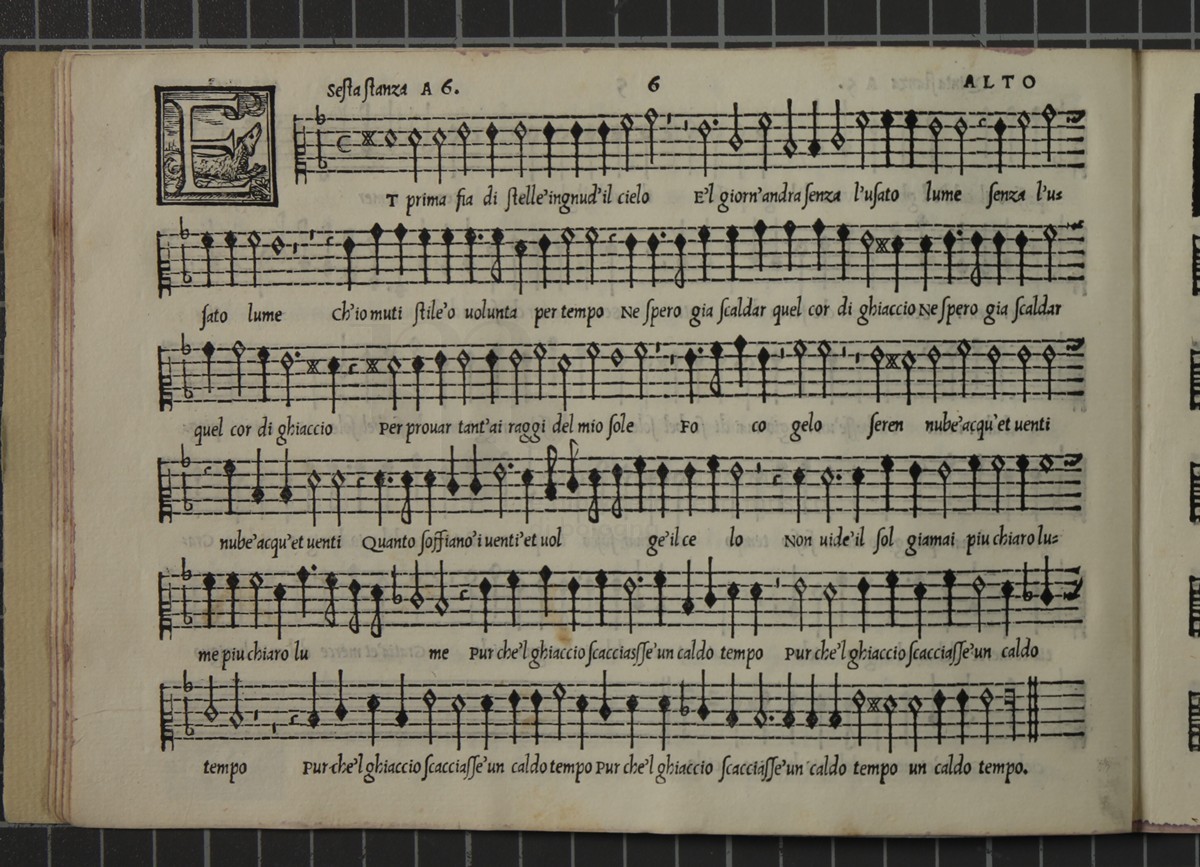 Sesta stanza A 6. 6 ALTO
ET prima fia di stelle'ingnud'il cielo E'l giorn'andra senza l'usato lume senza l'u=
sato lume Ch'io muti stile'o uolunta per tempo Ne spero gia scaldar quel cor di ghiaccio Ne spero gia scaldar
quel cor di ghiaccio Per prouar tant'ai raggi del mio sole Fo co gelo seren nube'acqu'et uenti
nube'acqu'et uenti Quanto soffiano'i uenti'et uol ge'il ce lo Non uide'il sol giamai piu chiaro lu=
me piu chiaro lu me Pur che'l ghiaccio scacciasse'un caldo tempo Pur che'l ghiaccio scacciasse'un caldo
tempo Pur che'l ghiaccio scacciasse'un caldo tempo Pur che'l ghiaccio scacciasse'un caldo tempo un caldo tempo.